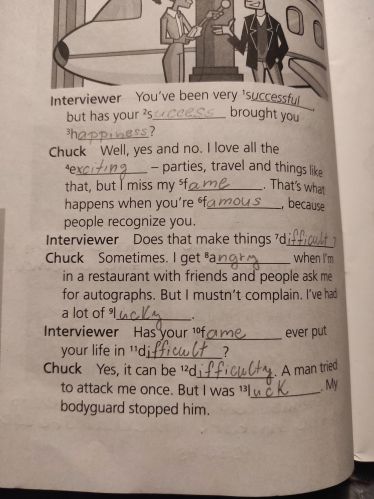 Interviewer You've been very ¹successful,
but has your ²success brought you
³happiness?
Chuck Well, yes and no. I love all the
⁴exciting – parties, travel and things like
that, but I miss my ⁵fame. That's what
happens when you're ⁶famous, because
people recognize you.
Interviewer Does that make things ⁷difficult?
Chuck Sometimes. I get ⁸angry when I'm
in a restaurant with friends and people ask me
for autographs. But I mustn't complain. I've had
a lot of ⁹lucky.
Interviewer Has your ¹⁰fame ever put
your life in ¹¹difficult?
Chuck Yes, it can be ¹²difficulty. A man tried
to attack me once. But I was ¹³luck. My
bodyguard stopped him.